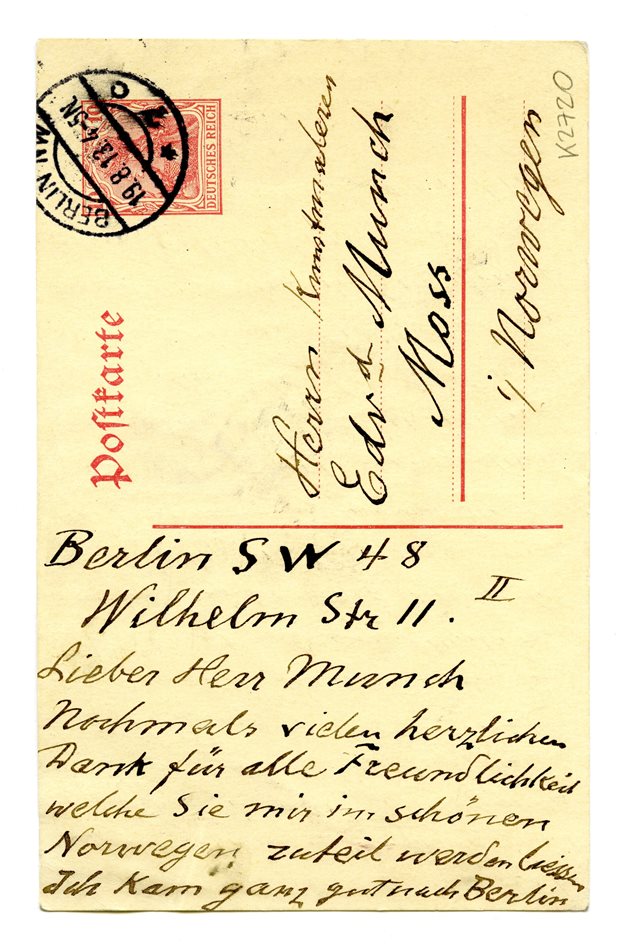 K2720
DEUTSCHES REICH
10
BERLIN
19.8.13.4-5N.
Postkarte
Herrn Kunstmaleren
Edvd Munch
Moss
i/ Norwegen
Berlin SW 48
Wilhelm Str 11. II
Lieber Herr Munch
Nochmals vielen herzlichen
Dank für alle Freundlichkeit
welche Sie mir im schönen
Norwegen zuteil werden liessen
Ich kam ganz gut nach Berlin